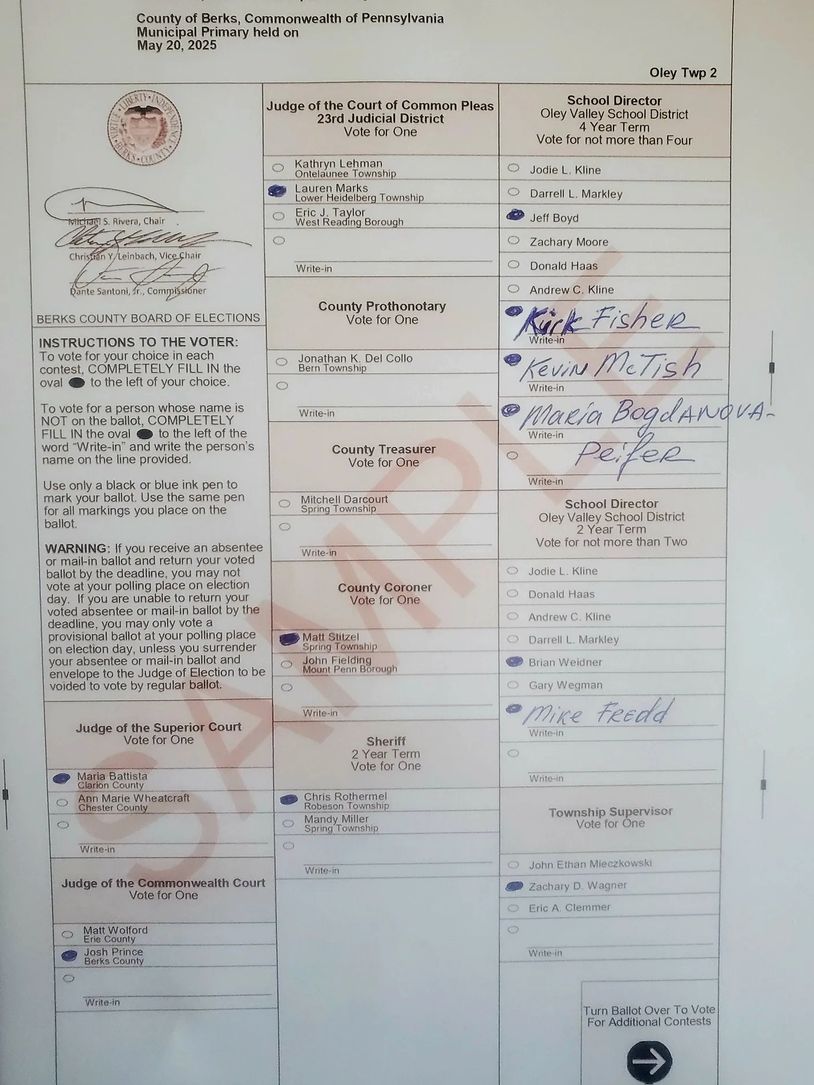 County of Berks, Commonwealth of Pennsylvania
Municipal Primary held on
May 20, 2025
Oley Twp 2
Michael S. Rivera, Chair
Christian Y. Leinbach, Vice Chair
Dante Santoni, Jr., Commissioner
BERKS COUNTY BOARD OF ELECTIONS
INSTRUCTIONS TO THE VOTER:
To vote for your choice in each
contest, COMPLETELY FILL IN the
oval to the left of your choice.
To vote for a person whose name is
NOT on the ballot, COMPLETELY
FILL IN the oval to the left of the
word "Write-in" and write the person's
name on the line provided.
Use only a black or blue ink pen to
mark your ballot. Use the same pen
for all markings you place on the
ballot.
WARNING: If you receive an absentee
or mail-in ballot and return your voted
ballot by the deadline, you may not
vote at your polling place on election
day. If you are unable to return your
voted absentee or mail-in ballot by the
deadline, you may only vote a
provisional ballot at your polling place
on election day, unless you surrender
your absentee or mail-in ballot and
envelope to the Judge of Election to be
voided to vote by regular ballot.
Judge of the Superior Court
Vote for One
Maria Battista
Clarion County
Ann Marie Wheatcraft
Chester County
Write-in
Judge of the Commonwealth Court
Vote for One
Matt Wolford
Erie County
Josh Prince
Berks County
Write-in
Judge of the Court of Common Pleas
23rd Judicial District
Vote for One
Kathryn Lehman
Ontelaunee Township
Lauren Marks
Lower Heidelberg Township
Eric J. Taylor
West Reading Borough
Write-in
County Prothonotary
Vote for One
Jonathan K. Del Collo
Bern Township
Write-in
County Treasurer
Vote for One
Mitchell Darcourt
Spring Township
Write-in
County Coroner
Vote for One
Matt Stitzel
Spring Township
John Fielding
Mount Penn Borough
Write-in
Sheriff
2 Year Term
Vote for One
Chris Rothermel
Robeson Township
Mandy Miller
Spring Township
Write-in
School Director
Oley Valley School District
4 Year Term
Vote for not more than Four
Jodie L. Kline
Darrell L. Markley
Jeff Boyd
Zachary Moore
Donald Haas
Andrew C. Kline
Kirk Fisher
Write-in
Kevin McTish
Write-in
Maria BogdANOVA-
Write-in
Peifer
Write-in
School Director
Oley Valley School District
2 Year Term
Vote for not more than Two
Jodie L. Kline
Donald Haas
Andrew C. Kline
Darrell L. Markley
Brian Weidner
Gary Wegman
Mike Fredd
Write-in
Write-in
Township Supervisor
Vote for One
John Ethan Mieczkowski
Zachary D. Wagner
Eric A. Clemmer
Write-in
Turn Ballot Over To Vote
For Additional Contests
SAMPLE